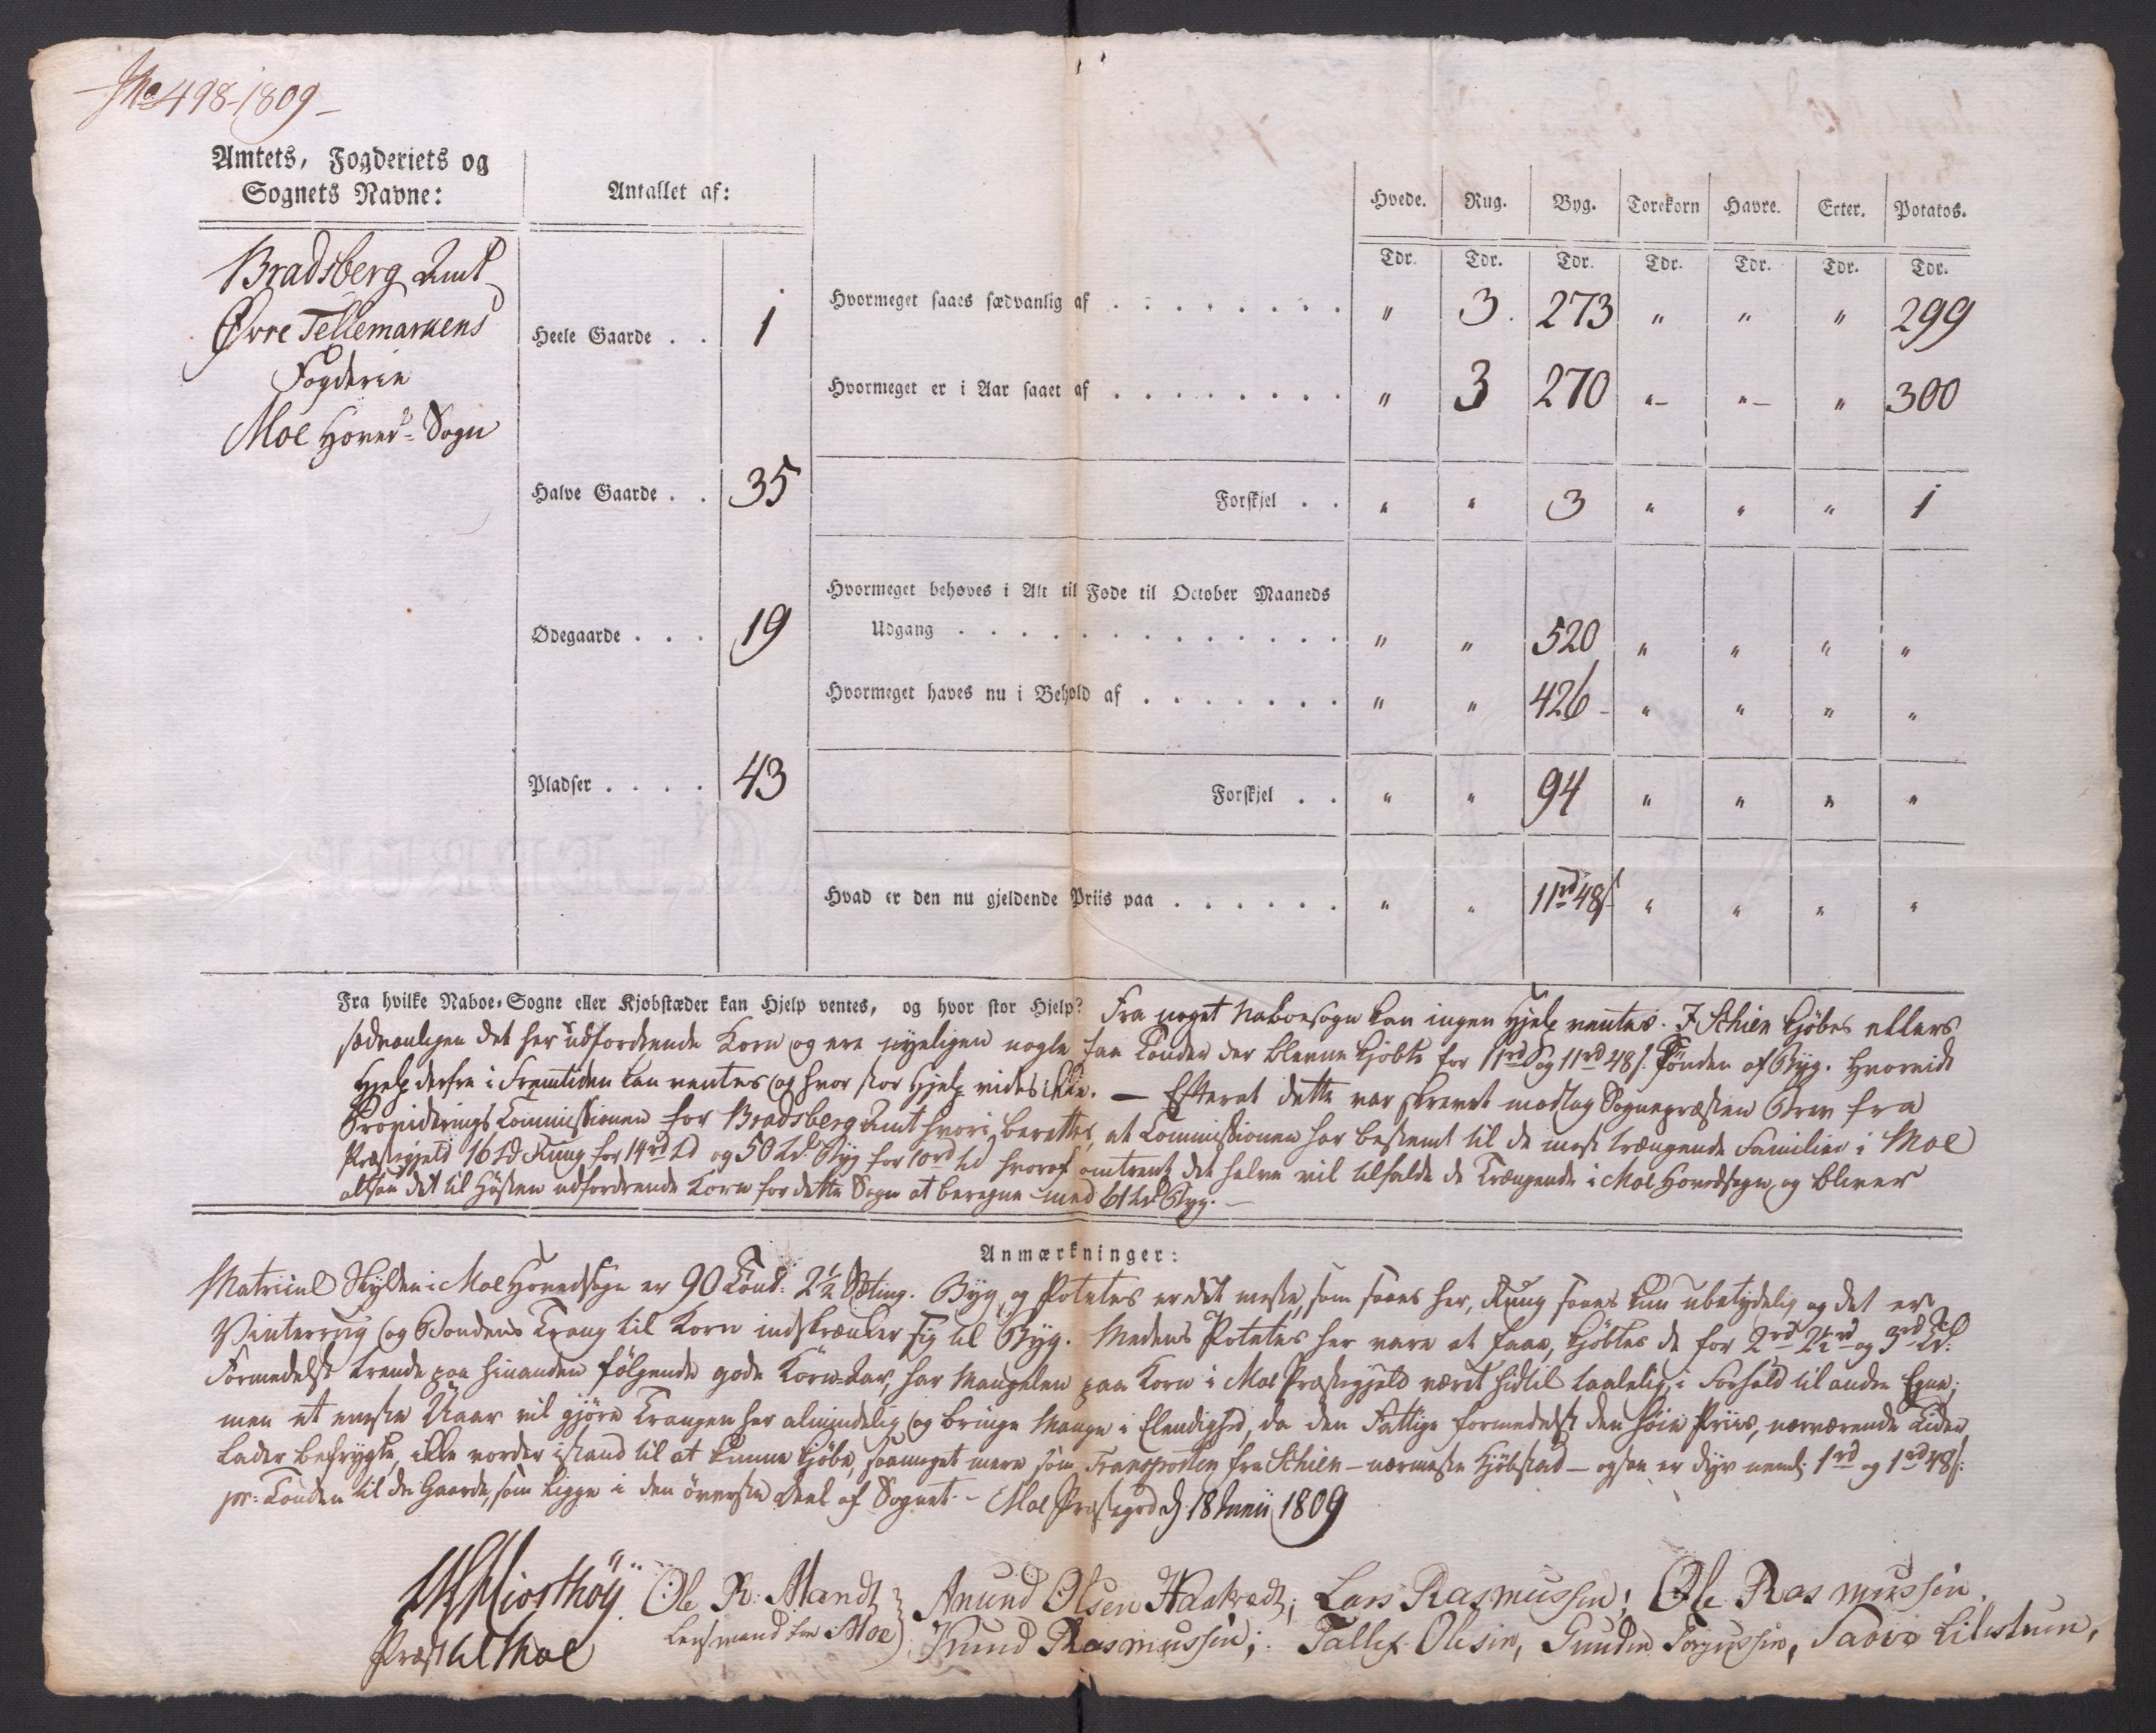 No 498-1809
Amtets, Fogderiets og
Sognets Navne:
Antallet af:
Hvede. Rug. Byg. Torekorn Havre. Erter. Potatos.
Tdr. Tdr. Tdr. Tdr. Tdr. Tdr. Tdr.
Bradsberg Amt
Øvre Tellemarkens
Fogderie
Moe Hoved- Sogn
Heele Gaarde . . 1
Halve Gaarde . . 35
Ødegaarde . . . 19
Pladser . . . . 43
Hvormeget saaes sædvanlig af . . . . . . . . " 3. 273 " " " 299
Hvormeget er i Aar saaet af . . . . . . . . " 3 270 " " " 300
Forskjel . . " " 3 " " " 1
Hvormeget behøves i Alt til Føde til October Maaneds
Udgang . . . . . . . . . . . . . " " 520 " " " "
Hvormeget haves nu i Behold af . . . . . . . " " 426 " " " "
Forskjel . . " " 94 " " " "
Hvad er den nu gjeldende Priis paa . . . . . . " " 11rd 48s " " " "
Fra hvilke Naboe-Sogne eller Kjøbstæder kan Hjelp ventes, og hvor stor Hjelp? Fra noget Naboesogn kan ingen Hjelp ventes. I Schien kjöbes ellers
sædvanligen det her udfordrende Korn og ere nyeligen nogle faa Tönder der blevne kjöbte for 11rd og 11rd 48s. Tönden af Byg. Hvorvidt
Hjelp derfra i Fremtiden kan ventes og hvor stor Hjelp vides ikke. — Efterat dette var skrevet modtog Sognepræsten Brev fra
Providerings Commissionen for Bradsberg Amt hvori berettes, at Commissionen har bestemt til de mest trængende Familier i Moe
Præstegjeld 16 Td Rug for 14rd Td og 50 Td. Byg for 10rd Td hvoraf omtrent det halve vil tilfalde de Trængende i Moe Hovedsogn, og bliver
altsaa det til Hösten udfordrende Korn for dette Sogn at beregne med 61 Td Byg. —
Anmærkninger:
Matricul Skylden i Moe Hovedsogn er 90 Tönd: 2½ Sætting. Byg og Potetes er det meste, som saaes her, Rug saaes kun ubetydelig og det er
Vinterrug og Bondens Trang til Korn indskrænker sig til Byg. Medens Potetes her vare at faae, kjöbtes de for 2rd 2½rd og 3rd Td.
Formedelst trende paa hinanden fölgende gode Korn-Aar, har Mangelen paa Korn i Moe Præstegjeld været hidtil taalelig i Forhold til andre Egne;
men et eneste Uaar vil gjöre Trangen her almindelig og bringe Mange i Elendighed, da den Fattige formedelst den höie Priis, nærværende Tider
lader befrygte, ikke vorder istand til at kunne kjöbe, saameget mere som Transporten fra Schien — nærmeste Kjöbstad — ogsaa er dyr neml: 1rd og 1rd 48s:
pr: Tönden til de Gaarde, som ligge i den överste Deel af Sognet. — Moe Præstegrd d. 18 Junii 1809
Kiosthöy. Ole R: Mandt Anund Olsen Haatvedt; Lars Rasmussen; Ole Rasmussen.
Præst til Moe Lensmand i Moe Knud Rasmussen; Tallef Olesen, Gunder Torjussen,